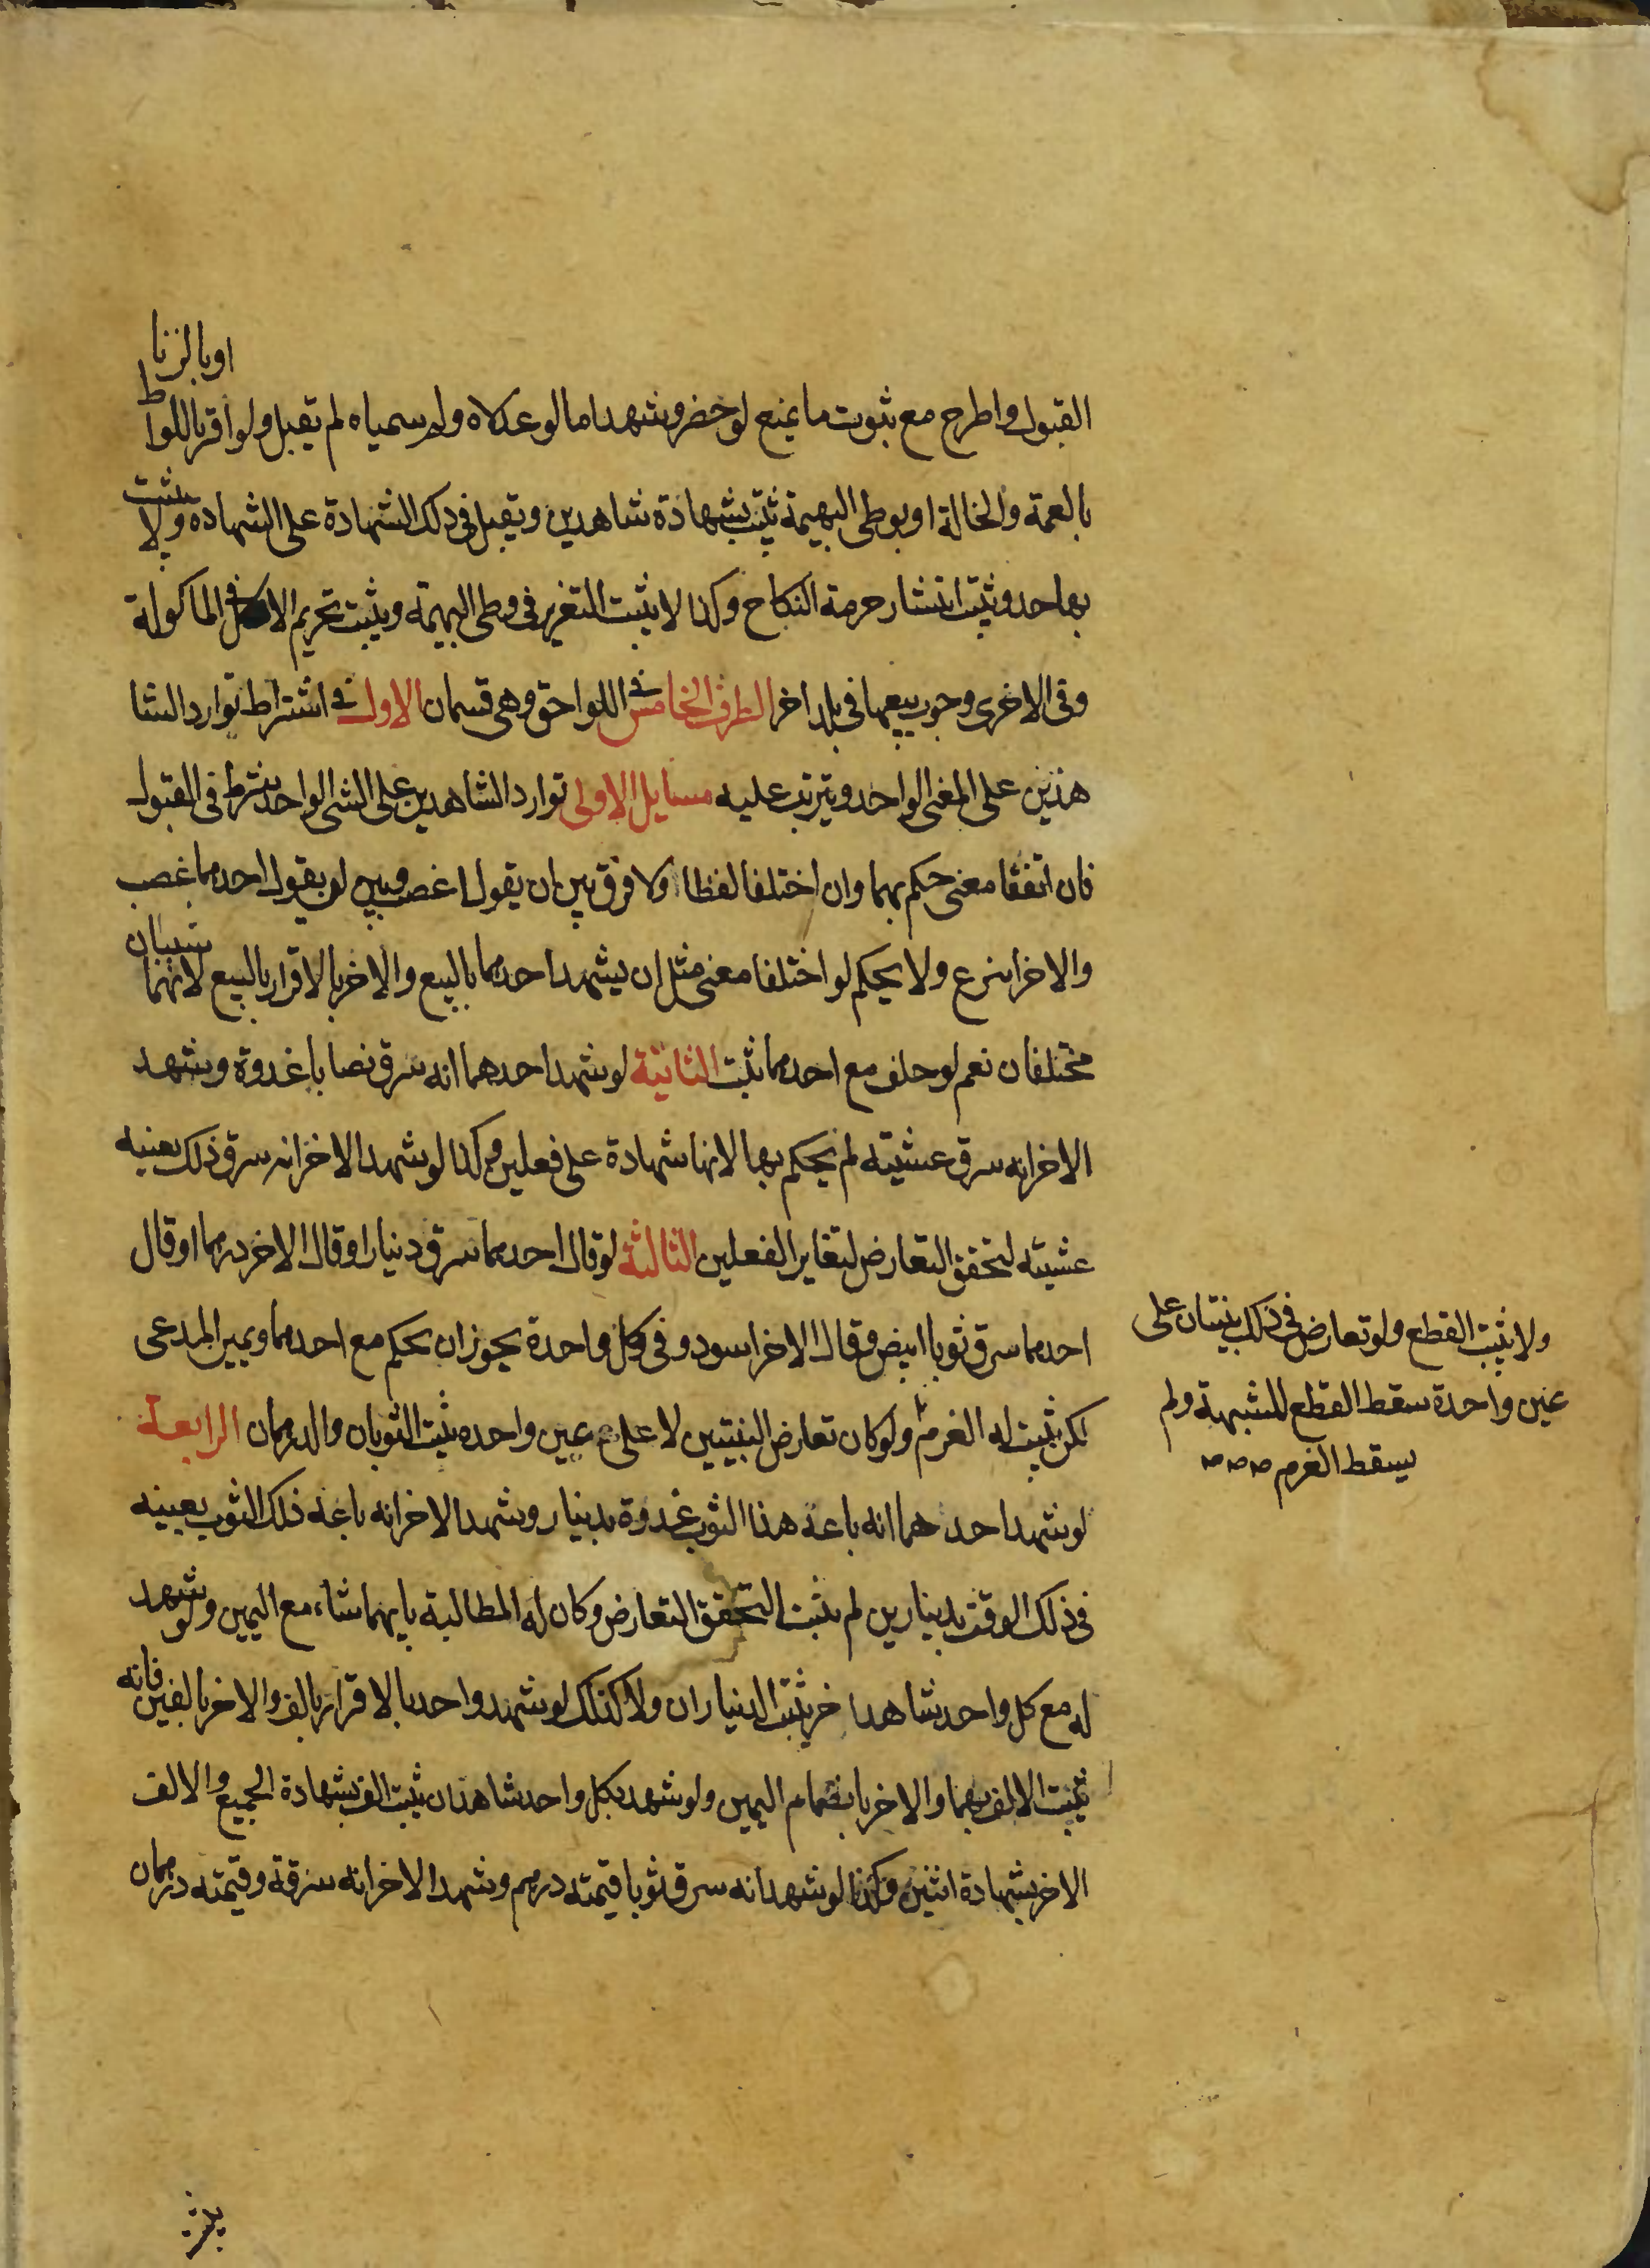 القبول واطرح مع ثبوت ما يمنع لو حضر وشهد اما لو عدلاه ولم سمياه لم تقبل ولو اقر باللواط او بالزنا
بالعمة والخالة او بوطى البهيمة ثبت بشهادة شاهدين وتقبل فى ذلك الشهادة على الشهاده ولا يثبت
بها حد ويثبت انتشار حرمة النكاح وكذا لا يثبت التعزير فى وطى البهيمة ويثبت تحريم الاكل فى الماكولة
وفى الاخرى وجوب بيعها فى بلد اخر الطرف الخامس فى اللواحق وهى قسمان الاول فى اشتراط توارد الشا
هدين على المعنى الواحد ويترتب عليه مسايل الاولى توارد الشاهدين على الشى الواحد شرط فى القبول
فان اتفقا معنى حكم بهما وان اختلفا لفظا ولا فرق بين ان يقول اغصب وبين لو يقول احدهما غصب
والاخر انتزع ولا يحكم لو اختلفا معنى مثل ان يشهد احدهما بالبيع والاخر بالاقرار بالبيع لانهما شيئان
مختلفان نعم لو حلف مع احدهما ثبت الثانية لو شهد احدهما انه سرق نصابا غدوة وشهد
الاخر انه سرق عشيته لم يحكم بها لانها شهادة على فعلين وكذا لو شهد الاخر انه سرق ذلك بعينه
عشيته لتحقق التعارض لتغاير الفعلين الثالثة لو قال احدهما سرق دينارا وقال الاخر درهما او قال
احدهما سرق ثوبا ابيض وقال الاخر اسود وفى كل واحدة يجوز ان يحكم مع احدهما ويمين المدعى
لكن يثبت له الغرم ولو كان تعارض البنيتين لا على عين واحده ثبت الثوبان والدرهمان الرابعة
لو شهد احدهما انه باعه هذا الثوب غدوة بدينار وشهد الاخر انه باعه ذلك الثوب بعينه
فى ذلك الوقت بدينارين لم يثبت التحقق التعارض وكان له المطالبة بايهما شاء مع اليمين ولو شهد
له مع كل واحد شاهدا خر يثبت الديناران ولا كذلك لو شهد واحد بالاقرار بالف والاخر بالفين فانه
يثبت الالف بهما والاخر بانضمام اليمين ولو شهد بكل واحد شاهدان ثبت الف بشهادة الجميع والالف
الاخر بشهادة اثنين وكذا لو شهد انه سرق ثوبا قيمته درهم وشهد الاخر انه سرقة وقيمته درهمان
ولا يثبت القطع ولو تعارض فى ذلك بينتان على
عين واحدة سقط القطع للشبهة ولم
يسقط الغرم صه صه صه